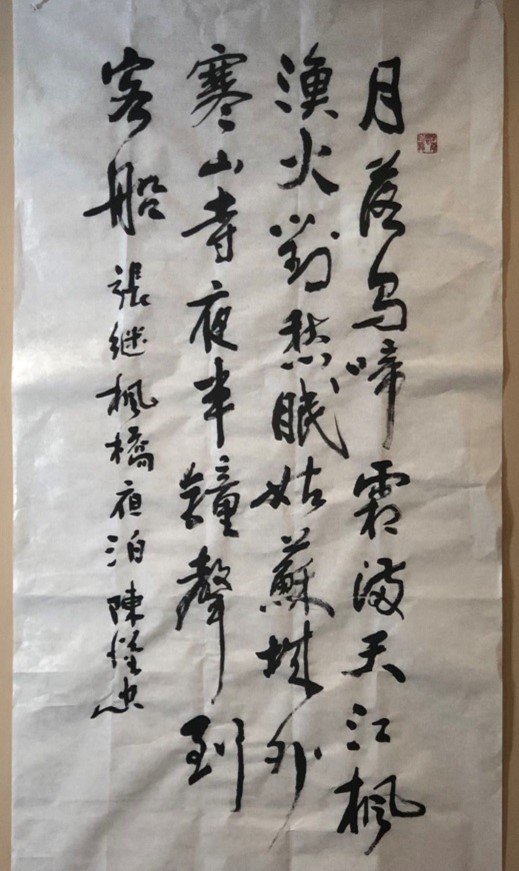 月落烏啼霜滿天江楓
漁火對愁眠姑蘇城外
寒山寺夜半鐘聲到
客船
張繼楓橋夜泊 陳